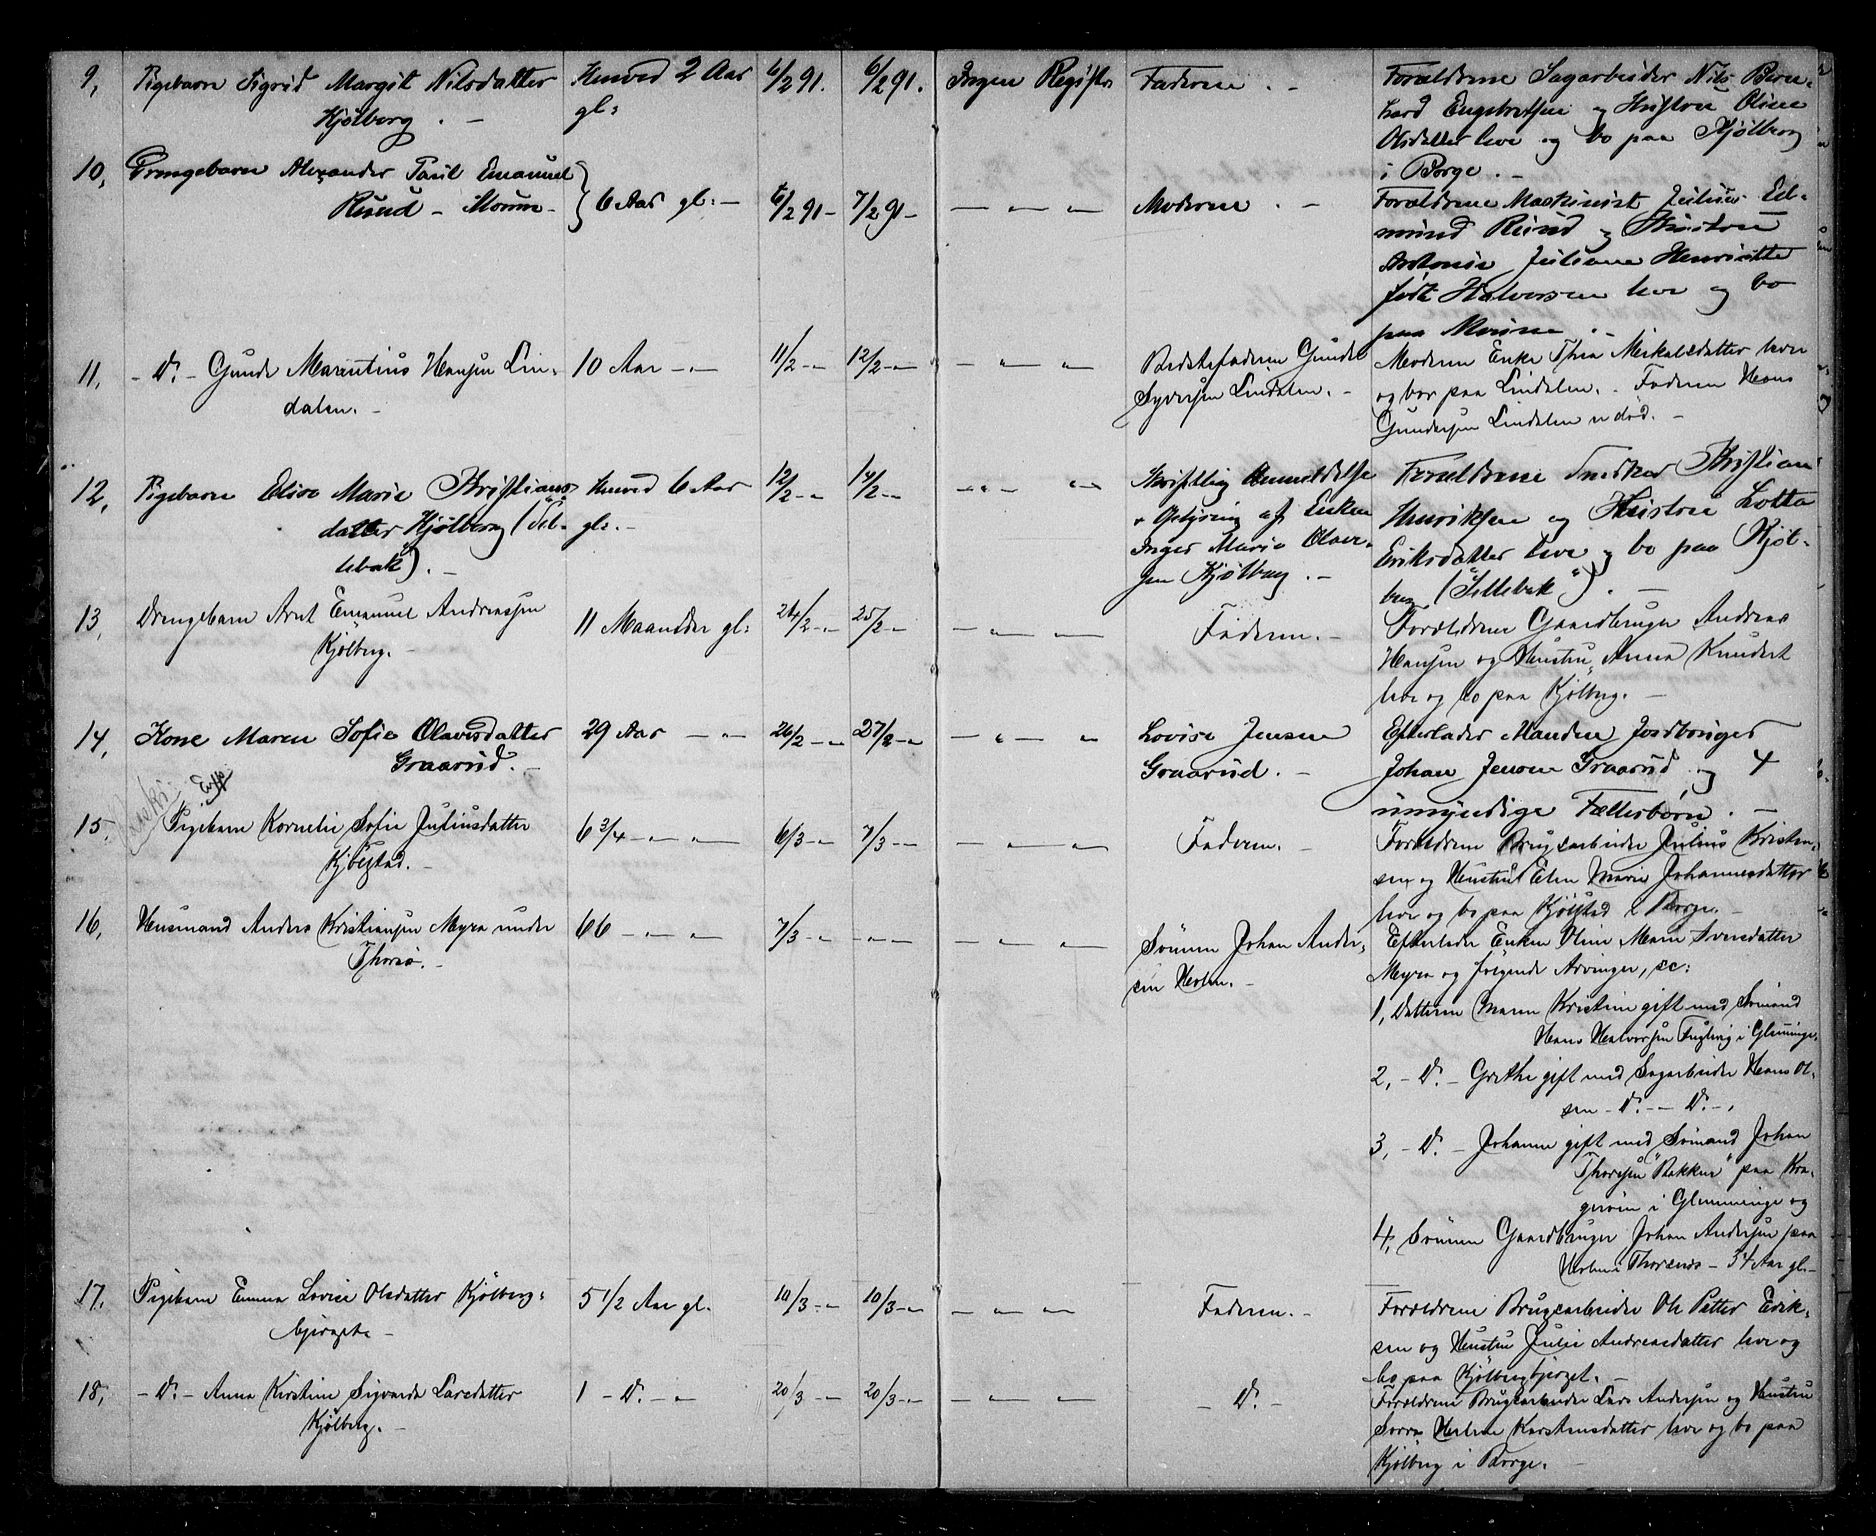 9, Pigebarn Sigrid Margit Nilsdatter Henved 2 Aar 6/2 91. 6/2 91. Ingen Registr. Faderen. - Forældrene Sagarbeider Nils Bern-
Kjølberg. - gl: hard Engebretsen og Hustru Oline
Olsdatter leve og bo paa Kjølberg
i Borge. -
10, Drengebarn Alexander Paul Emanuel
Ruud - Moum - 6 Aar gl: - 6/2 91 - 7/2 91 - — " — " Moderen. - Forældrene Maskinist Julius Ed-
mund Ruud og Hustru
Antonie Juliane Henriette
født Halvorsen leve og bo
paa Moum. -
11, - Do. - Gunder Marentius Hansen Lin- 10 Aar - " - 11/2 - " 12/2 - " — " — " Bedstefaderen Gunder Moderen Enke Thea Mikalsdatter lever
dalen. - Syversen Lindalen. - og bor paa Lindalen. - Faderen Hans
Gundersen Lindalen er død. -
12, Pigebarn Elise Marie Kristians- Henved 6 Aar 12/2 - " 14/2 - " — " — " Skriftlig Anmeldelse Forældrene Snedker Kristian
datter Kjølberg ("Sil- gl: - af Enken Henriksen og Hustru Lotta
lebak"). - Inger Marie Olav- Eriksdatter leve og bo paa Kjøl-
sen Kjølberg. - berg ("Sillebak"). -
13, Drengebarn Arnt Emanuel Andreassen 11 Maaneder gl: 24/2 - " 25/2 - " — " — Faderen. - Forældrene Gaardbruger Andreas
Kjølberg. - Hansen og Hustru Anna
leve og bo paa Kjølberg. -
14, Kone Maren Sofie Olavesdatter 29 Aar — " 26/2 - " 27/2 - " — " — " Lovise Jensen Efterlader Manden Jordbruger
Graarud. - Graarud. - Johan Jensen Graarud og 4
umyndige Fællesbørn. -
15, Pigebarn Kornelie Sofie Juliusdatter 6 3/4 - " - " 6/3 - " 7/3 - " — " — Faderen. - Forældrene Brugsarbeider Julius Kristen-
Kjølstad. - sen og Hustru Elen Marie Johannesdatter
leve og bo paa Kjølstad i Borge. -
16, Husmand Anders Kristiansen Myra under 66 - " - " 7/3 - " - " - — " — " Sønnen Johan Ander- Efterlader Enken Oline Marie Iversdatter
Thorsø. - sen Holm. - Myra og følgende Arvinger, sc:
1, Datteren Maren Kristine gift med Sømand
Hans Halvorsen i Glemminge.
2, - Do. - Grethe gift med Sagarbeider Hans Ol-
sen - Do. - Do. -
3, - Do. - Johanne gift med Sømand Johan
Thorsen "Bakken" paa Kra-
gerøen i Glemminge og
4, Sønnen Gaardbruger Johan Andersen paa
Holm i Thorsnes - 34 Aar gl: -
17, Pigebarn Emma Lovise Olsdatter Kjølberg- 5 1/2 Aar gl. 10/3 - " 10/3 - " — " — " Faderen. - Forældrene Brugsarbeider Ole Petter Erik-
bjerget. - sen og Hustru Julie Andreasdatter leve og
bo paa Kjølbergbjerget. -
18, - Do. - Anna Kirstine Sigvarda Larsdatter 1 - Do. - " 20/3 - " 20/3 - " — " — " - Do. - Forældrene Brugsarbeider Lars Andersen og Hustru
Kjølberg. - Helene Karstensdatter leve og bo paa
Kjølberg i Borge. -